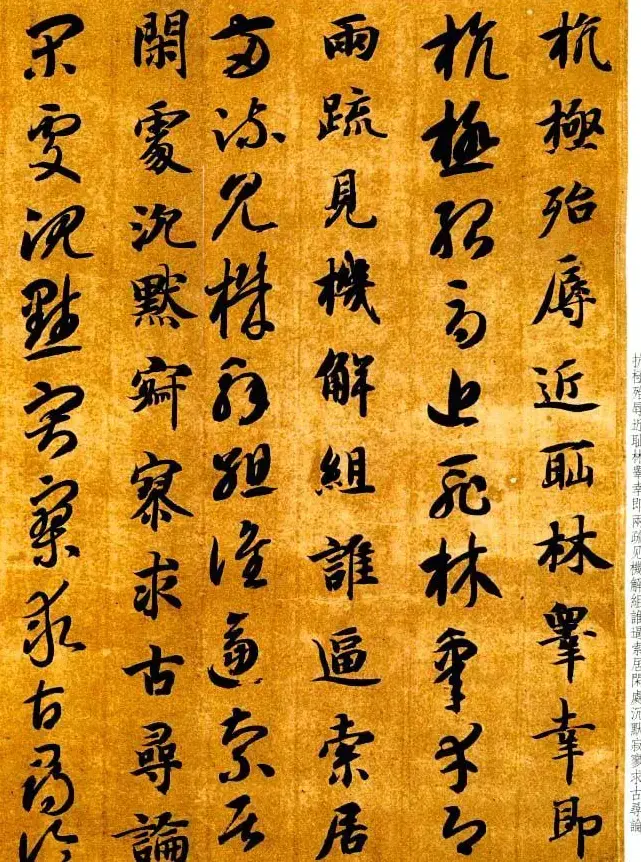 杭極殆辱近耻林睪幸即
杭極殆辱近耻林皋幸即
兩疏見機解組誰逼索居
兩疏見機解組誰逼索居
閑處沉默寂寥求古尋論
閑處沉默寂寥求古尋論
抗极殆辱近耻林睪幸即兩疏见機解組誰逼索居閑處沉默寂寥求古尋論